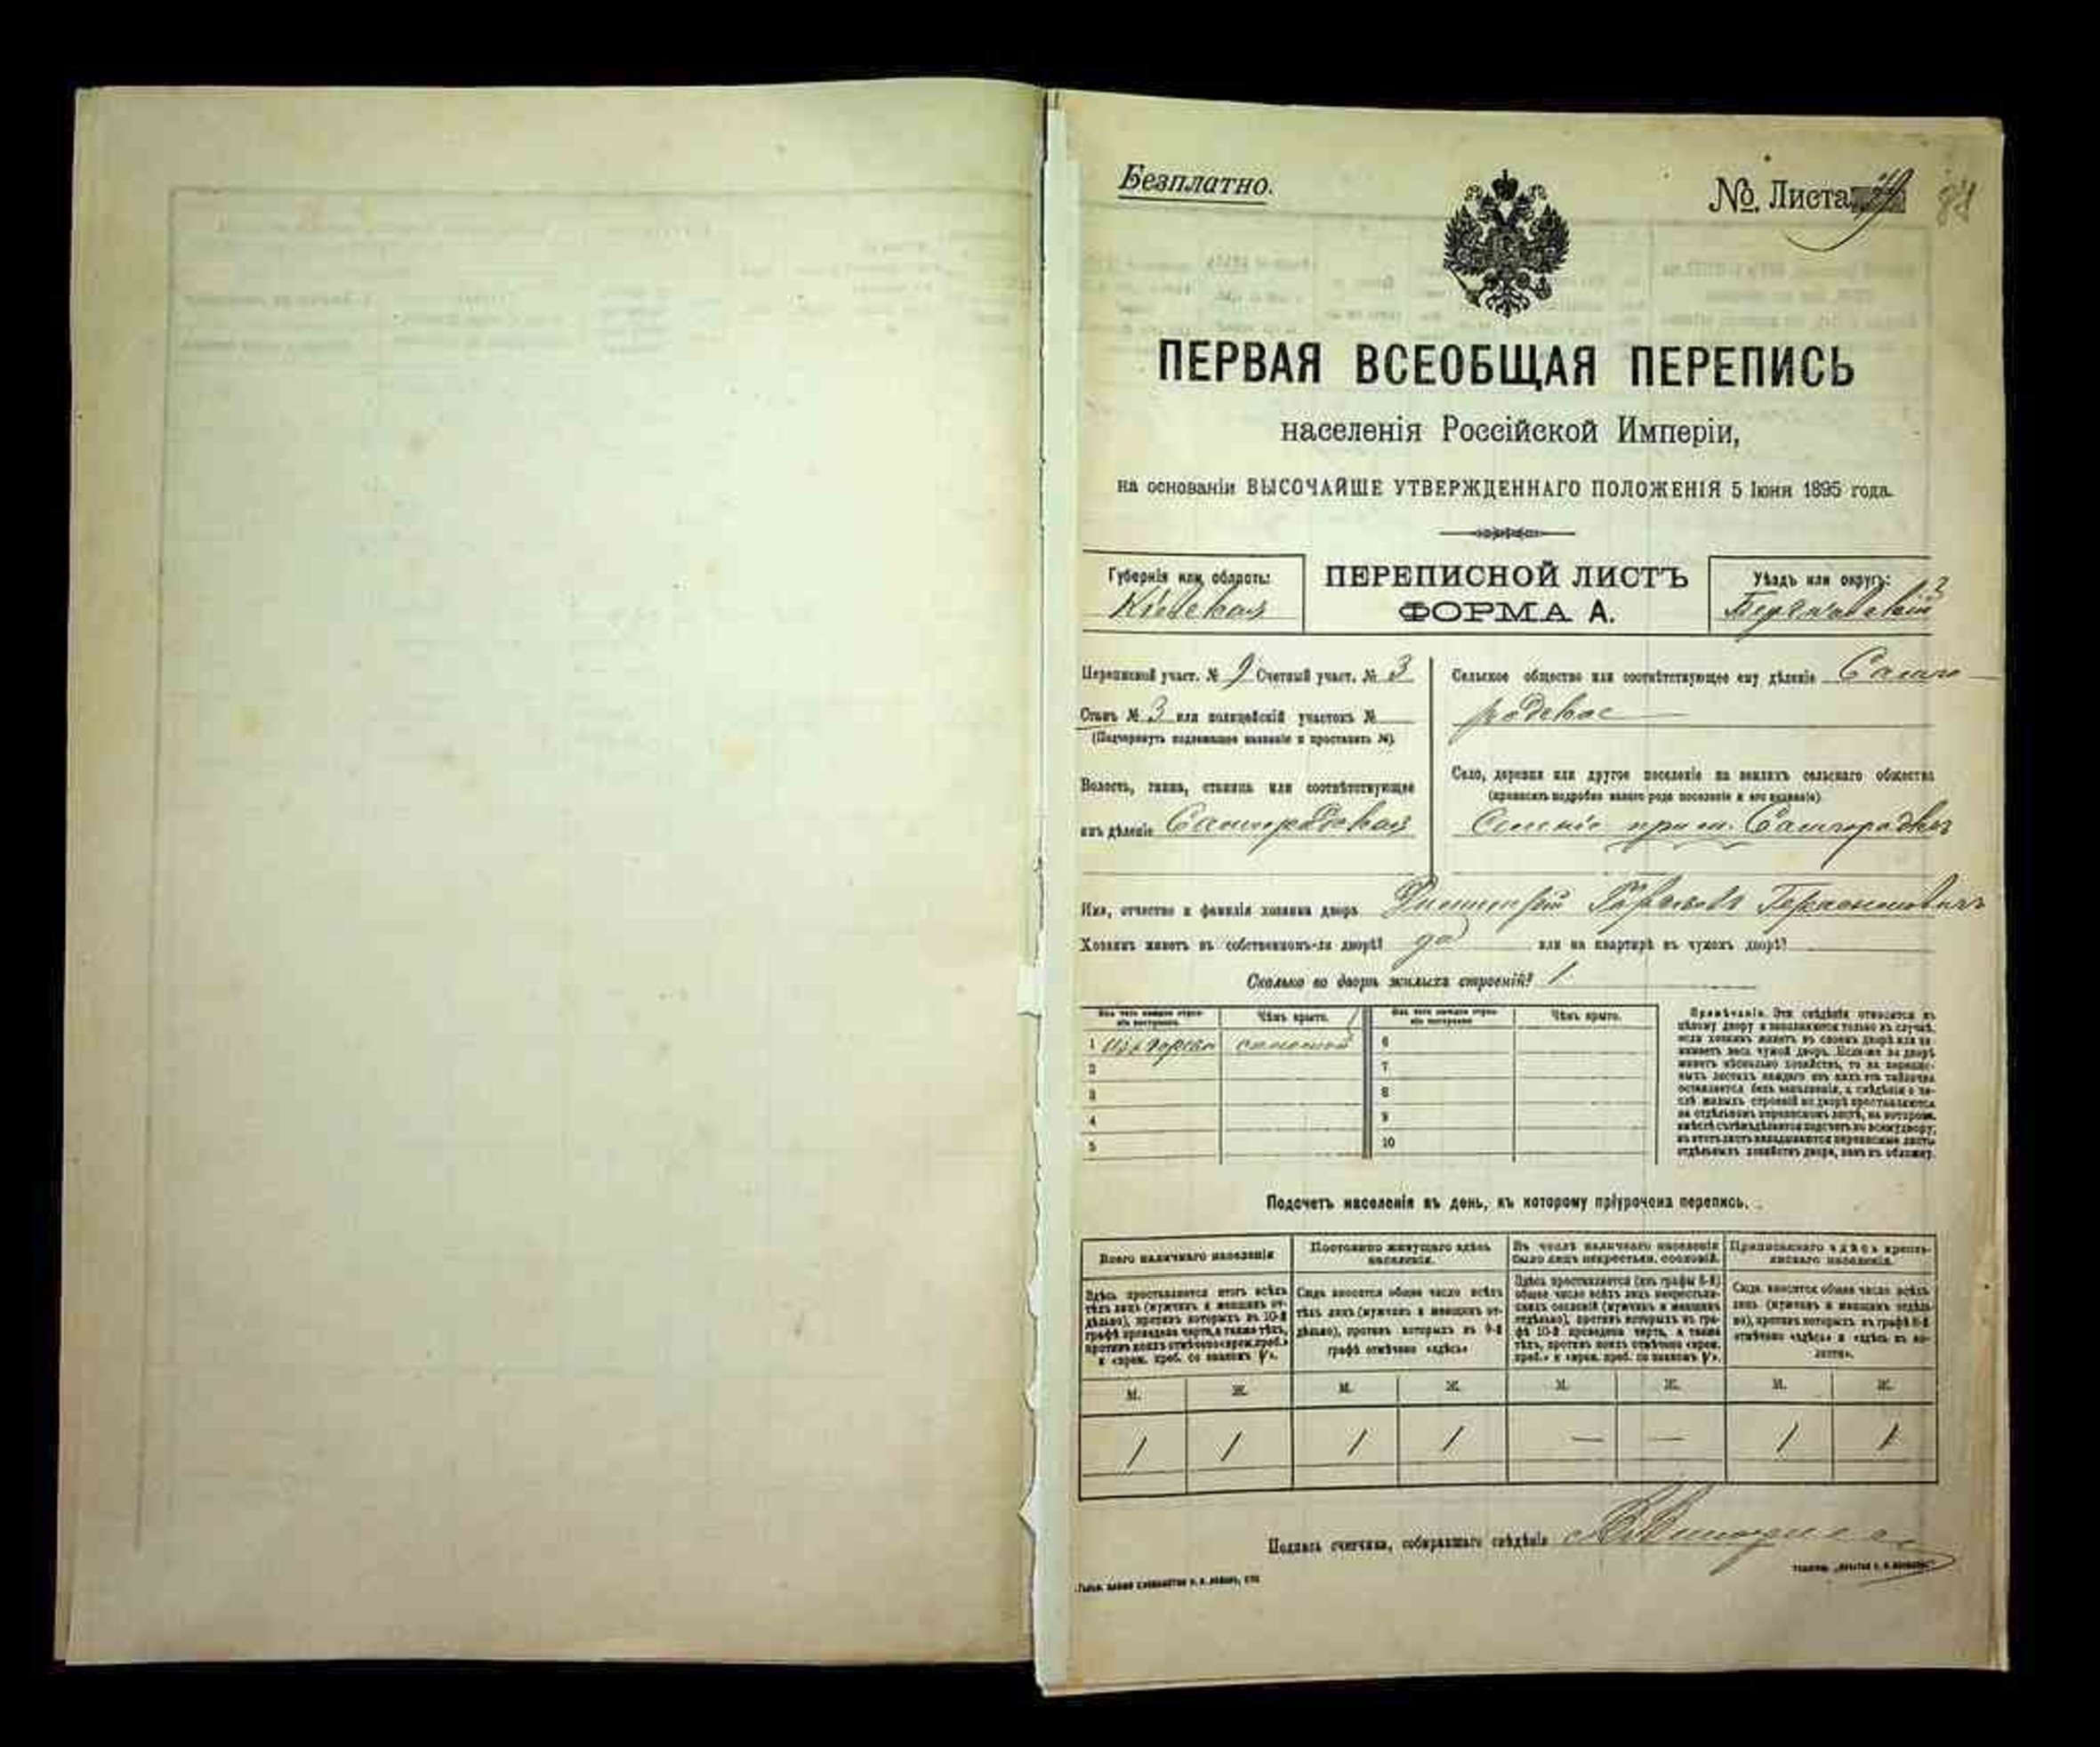 Безплатно.
№ Листа
ПЕРВАЯ ВСЕОБЩАЯ ПЕРЕПИСЬ
населенія Россійской Имперіи,
на основаніи ВЫСОЧАЙШЕ УТВЕРЖДЕННАГО ПОЛОЖЕНІЯ 5 Іюня 1895 года.
Губернія или область:
Кіевская
ПЕРЕПИСНОЙ ЛИСТЪ
ФОРМА А.
Уѣздъ или округъ:
Бердичевскій
Переписной участ. № 9 Счетный участ. № 3
Станъ № 3 или полицейскій участокъ №
(Подчеркнуть подлежащее названіе и проставить №)
Волость, гмина, станица или соотвѣтствующее
имъ дѣленіе Самгородская
Сельское общество или соотвѣтствующее ему дѣленіе Самго-
родское
Село, деревня или другое поселеніе на земляхъ сельскаго общества
(прописать подробно какого рода поселеніе и его названіе)
при м. Самгородкѣ
Имя, отчество и фамилія хозяина двора Дмитрій
Хозяинъ живетъ въ собственномъ-ли дворѣ? да или на квартирѣ въ чужомъ дворѣ?
Сколько во дворѣ жилыхъ строеній? 1
Изъ чего каждое строеніе построено.
Чѣмъ крыто.
Изъ чего каждое строеніе построено.
Чѣмъ крыто.
1 соломой 6
2 7
3 8
4 9
5 10
Примѣчаніе. Эти свѣдѣнія относятся къ
цѣлому двору и заполняются только въ случаѣ,
если хозяинъ живетъ въ своемъ дворѣ или за-
нимаетъ весь чужой дворъ. Если-же во дворѣ
живетъ нѣсколько хозяйствъ, то на перепис-
ныхъ листахъ каждаго изъ нихъ эта табличка
оставляется безъ заполненія, а свѣдѣнія о чи-
слѣ жилыхъ строеній во дворѣ проставляются
на отдѣльномъ переписномъ листѣ, на которомъ
вмѣстѣ съ тѣмъ дѣлается подсчетъ по всему двору;
въ этотъ листъ вкладываются переписные листы
отдѣльныхъ хозяйствъ двора, какъ въ обложку.
Подсчетъ населенія въ день, къ которому пріурочена перепись.
Всего наличнаго населенія
Постоянно живущаго здѣсь
населенія.
Въ числѣ наличнаго населенія
было лицъ некрестьян. сословій.
Приписаннаго здѣсь кресть-
янскаго населенія.
Здѣсь проставляется итогъ всѣхъ
тѣхъ лицъ (мужчинъ и женщинъ от-
дѣльно), противъ которыхъ въ 10-й
графѣ проведена черта, а также тѣхъ,
противъ коихъ отмѣчено «врем. преб.»
и «врем. преб. со знакомъ V».
Сюда вносится общее число всѣхъ
тѣхъ лицъ (мужчинъ и женщинъ от-
дѣльно), противъ которыхъ въ 9-й
графѣ отмѣчено «здѣсь»
Здѣсь проставляется (изъ графы 6-й)
общее число всѣхъ лицъ некрестьян-
скихъ сословій (мужчинъ и женщинъ
отдѣльно), противъ которыхъ въ гра-
фѣ 10-й проведена черта, а также
тѣхъ, противъ коихъ отмѣчено «врем.
преб.» и «врем. преб. со знакомъ V».
Сюда вносится общее число всѣхъ
лицъ (мужчинъ и женщинъ отдѣль-
но), противъ которыхъ въ графѣ 8-й
отмѣчено «здѣсь» и «здѣсь въ во-
лости».
М. Ж. М. Ж. М. Ж. М. Ж.
1 1 1 1 — — 1 1
Подпись счетчика, собиравшаго свѣдѣнія